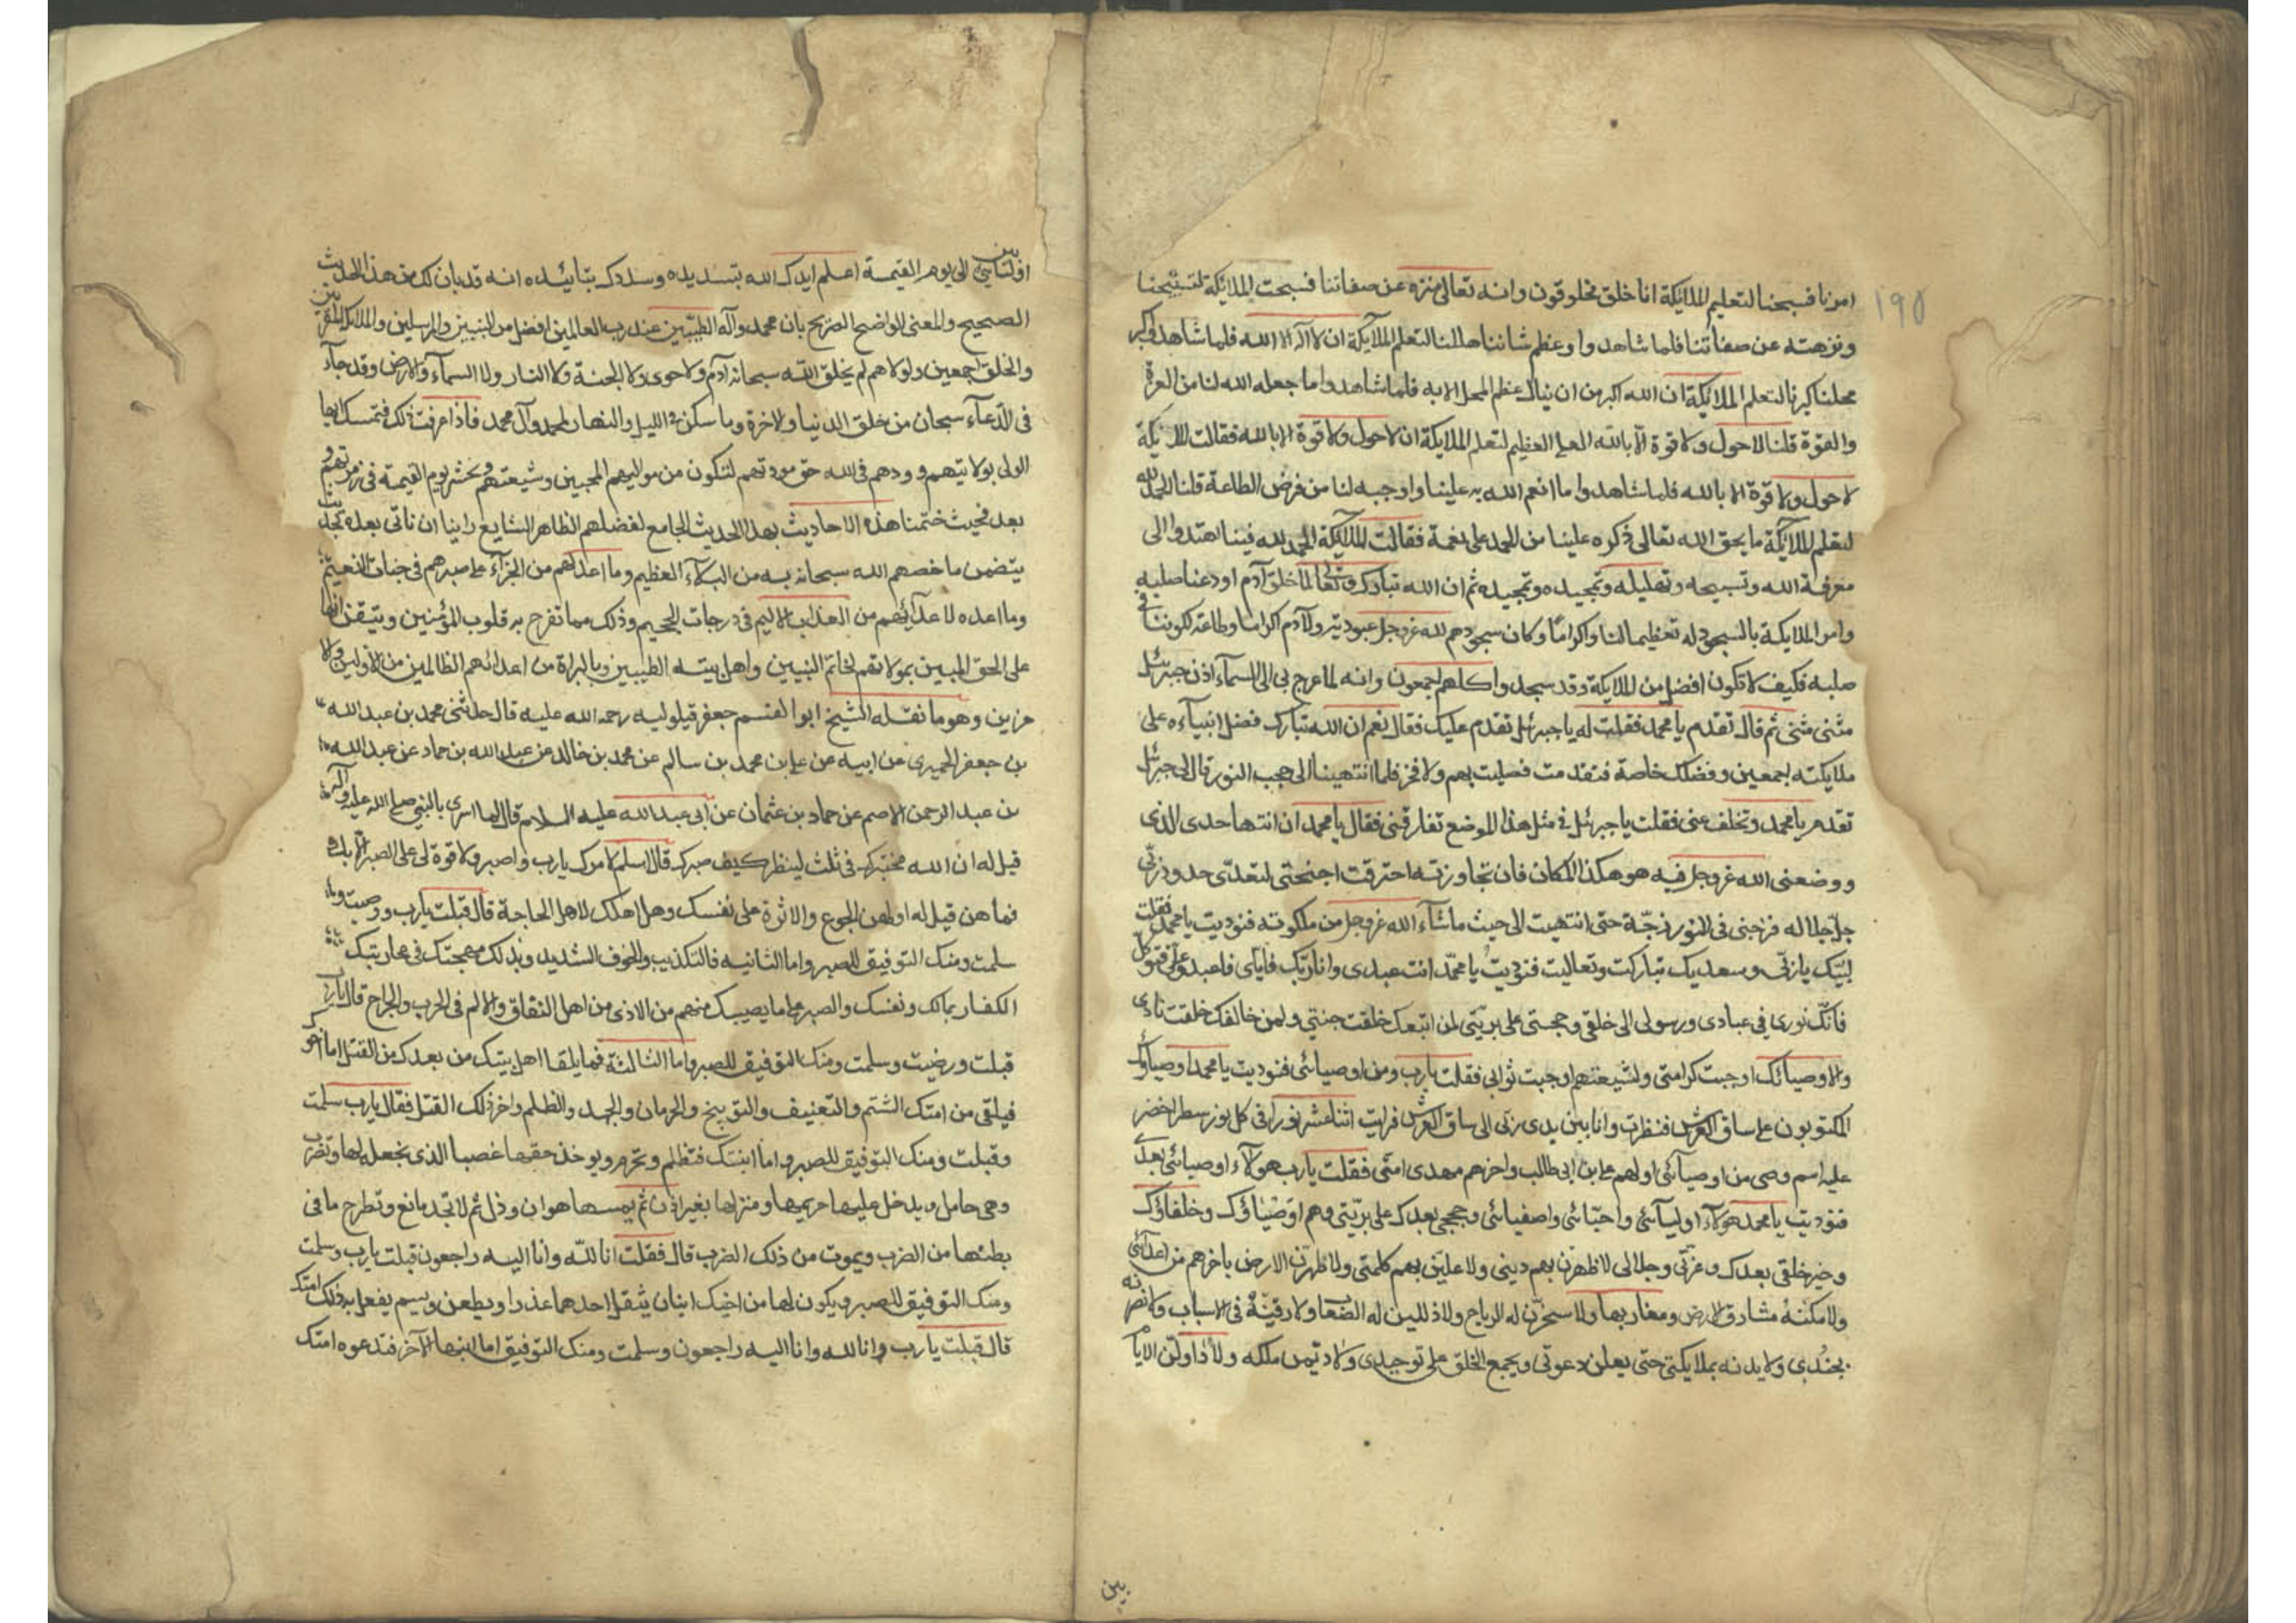 ١٩٥
امرنا فسبحنا لتعليم الملائيكة انا خلق مخلوقون وانه تعالى منزه عن صفاتنا فسبحت الملائيكة لتسبيحنا
ونزهته عن صفاتنا فلما شاهدوا وعظم شاننا هللنا لتعلم الملآئيكة ان لا اله الا الله فلما شاهدوا كبر
محلنا كبرنا لتعلم الملائيكة ان الله اكبر من ان ينال عظم المحل الا به فلما شاهدوا ما جعله الله لنا من العزة
والقوة قلنا لا حول ولا قوة الّا بالله العلي العظيم لتعلم الملائيكة ان لا حول ولا قوة الا بالله فقالت الملائيكة
لا حول ولا قوة الا بالله فلما شاهدوا ما انعم الله به علينا واوجبه لنا من فرض الطاعة قلنا الحمد لله
لتعلم الملائيكة ما يحق الله تعالى ذكره علينا من الحمد على نعمة فقالت الملائيكة الحمد لله فبنا اهتدوا الى
معرفة الله وتسبيحه وتهليله وتحميده وتمجيده ثم ان الله تبارك وتعالى لما خلق آدم اودعنا صلبه
وامر الملايكة بالسجود له تعظيما لنا واكراما وكان سجودهم لله عز وجل عبودية ولآدم اكراما وطاعة لكوننا في
صلبه فكيف لا نكون افضل من الملايكة وقد سجدوا كلهم اجمعون وانه لما عرج بي الى السمآء اذن جبرئيل
مثنى مثنى ثم قال تقدم يا محمد فقلت له يا جبرئيل تقدم عليك فقال نعم ان الله تبارك فضل انبياءه على
ملايكته اجمعين وفضلك خاصة فتقدمت فصليت بهم ولا فخر فلما انتهينا الى حجب النور قال لي جبرئيل
تقدم يا محمد وتخلف عني فقلت يا جبرئيل في مثل هذا الموضع تفارقني فقال يا محمد ان انتها حدى الذي
ووضعني الله عز وجل فيه هو هكذا المكان فان تجاوزته احترقت اجنحتي لتعدّي حدود ربّي
جلّ جلاله فزخني في النور زخّة حتى انتهيت الى حيث ما شآء الله عز وجل من ملكوته فنوديت يا محمد فقلت
لبيّك يا ربّي وسعديك تباركت وتعاليت فنوديت يا محمّد انت عبدي وانا ربّك فايّاي فاعبد وعليّ فتوكل
فانّك نوري في عبادي ورسولي الى خلقي وحجتي على بريّتي لمن اتبعك خلقت جنتي ولمن خالفك خلقت ناري
والاوصيائك اوجبت كرامتي ولشيعتهم اوجبت ثوابي فقلت يا رب ومن اوصيائي فنوديت يا محمد اوصياؤك
المكتوبون على ساق العرش فنظرت وانا بين يدي ربّي الى ساق العرش فرايت اثنا عشر نورا في كل نور سطر اخضر
عليه اسم وصي من اوصيآئي اولهم علي بن ابي طالب واخرهم مهدي امتي فقلت يا رب هؤلآء اوصيائي بعدي
فنوديت يا محمد هؤلآء اوليآئي واحبّائي واصفيائي وحججي بعدك على بريّتي وهم اوصياؤك وخلفاؤك
وخير خلقي بعدك وعزّتي وجلالي لاظهرنّ بهم ديني ولاعلينّ بهم كلمتي ولاطهرن الارض باخرهم من اعدائي
ولامكننه مشارق الارض ومغاربها ولاسخرّن له الرياح ولاذللن له الصعاب ولارقينّه في الاسباب ولانصرنه
بجندي ولايدنه بملايكتي حتى يعلن دعوتي ويجمع الخلق على توحيدي ولاديمن ملكه ولأداولنّ الايام
بين
بين اوليائي الى يوم القيمة اعلم ايدك الله بتسديده وسددك بتائيده انه قد بان لك من هذا الحديث
الصحيح والمعنى الواضح الصريح بان محمد وآله الطيبّين عند رب العالمين افضل من النبيين والمرسلين والملائكة المقربين
والخلق اجمعين ولولاهم لم يخلق الله سبحانه آدم ولا حوى ولا الجنة ولا النار ولا السمآء والارض وقد جآء
في الدّعآء سبحان من خلق الدنيا والاخرة وما سكن في الليل والنهار لمحمد وآل محمد فاذا عرفت ذلك فتمسك ايها
الولى بولايتهم وودهم في الله حق مودتهم لتكون من مواليهم المحبين وشيعتهم وتحشر يوم القيمة في زمرتهم و
بعد فحيث ختمنا هذه الاحاديث بهذا الحديث الجامع لفضلهم الظاهر الشايع راينا ان ناتى بعده بحديث
يتضمن ما خصهم الله سبحانه به من البلآء العظيم وما اعد لهم من الجزآء على صبرهم في جنات النعيم
وما اعده لاعدآئهم من العذاب الاليم في درجات الجحيم وذلك مما تفرح به قلوب المؤمنين وتتيقن انها
على الحق المبين بموالاتهم لخاتم النبيين واهل بيته الطيبين وبالبراة من اعدائهم الظالمين من الاولين والا
خرين وهو ما نقله الشيخ ابو القسم جعفر قيلوليه رحمه الله عليه قال حدثني محمد بن عبد الله
بن جعفر الحميري عن ابيه عن علي بن محمد بن سالم عن محمد بن خالد عن عبد الله بن حماد عن عبد الله
بن عبد الرحمن الاصم عن حماد بن عثمان عن ابي عبد الله عليه السلام قال لما اسري بالنبي صلى الله عليه وآله
قيل له ان الله مختبرك في ثلث لينظر كيف صبرك قال اسلم لامرك يا رب واصبر ولا قوة لي على الصبر الا بك
فما هن قيل له اولهن الجوع والاثرة على نفسك وهل اهلك لاهل الحاجة قال قبلت يا رب ورضيت و
سلمت ومنك التوفيق للصبر واما الثانيه فالتكذيب والخوف الشديد وبذلك مهجتك في محاربتك
الكفار بمالك ونفسك والصبر على ما يصيبك منهم من الاذى من اهل النفاق والالم في الحرب والجراح قال يا رب
قبلت ورضيت وسلمت ومنك التوفيق للصبر واما الثالثة فما يلقا اهل بيتك من بعدك من القتل اما اخوك
فيلقى من امتك الشتم والتعنيف والتوبيخ والحرمان والجهد والظلم واخر ذلك القتل فقال يا رب سلمت
وقبلت ومنك التوفيق للصبر واما ابنتك فتظلم وتحرم ويوخذ حقها غصبا الذي تجعله لها وتضرب
وهي حامل ويدخل عليها حريمها ومنزلها بغير اذن ثم يمسها هوان وذل ثم لا تجد مانع وتطرح ما في
بطنها من الضرب ويموت من ذلك الضرب قال فقلت انا للّه وانا اليه راجعون قبلت يا رب وسلمت
ومنك التوفيق للصبر ويكون لها من اخيك ابنان يثقل احدهما غدرا ويطعن ويسم يفعل به ذلك امتك
قال قبلت يا رب وانا لله وانا اليه راجعون وسلمت ومنك التوفيق اما ابنها الآخر فتدعوه امتك